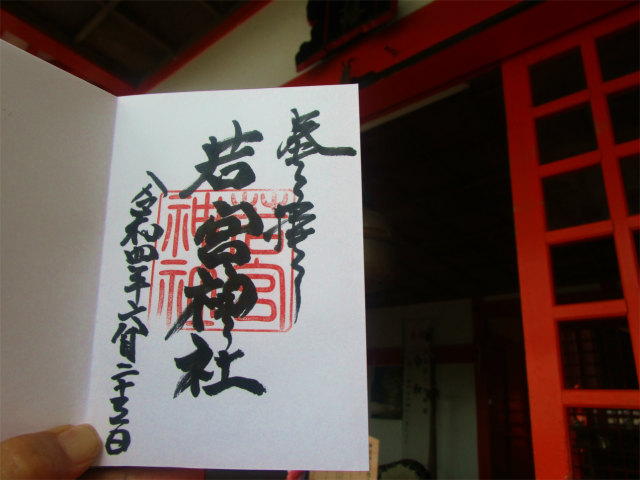 奉拝
若宮神社
若宮
神社
令和四年六月二十五日